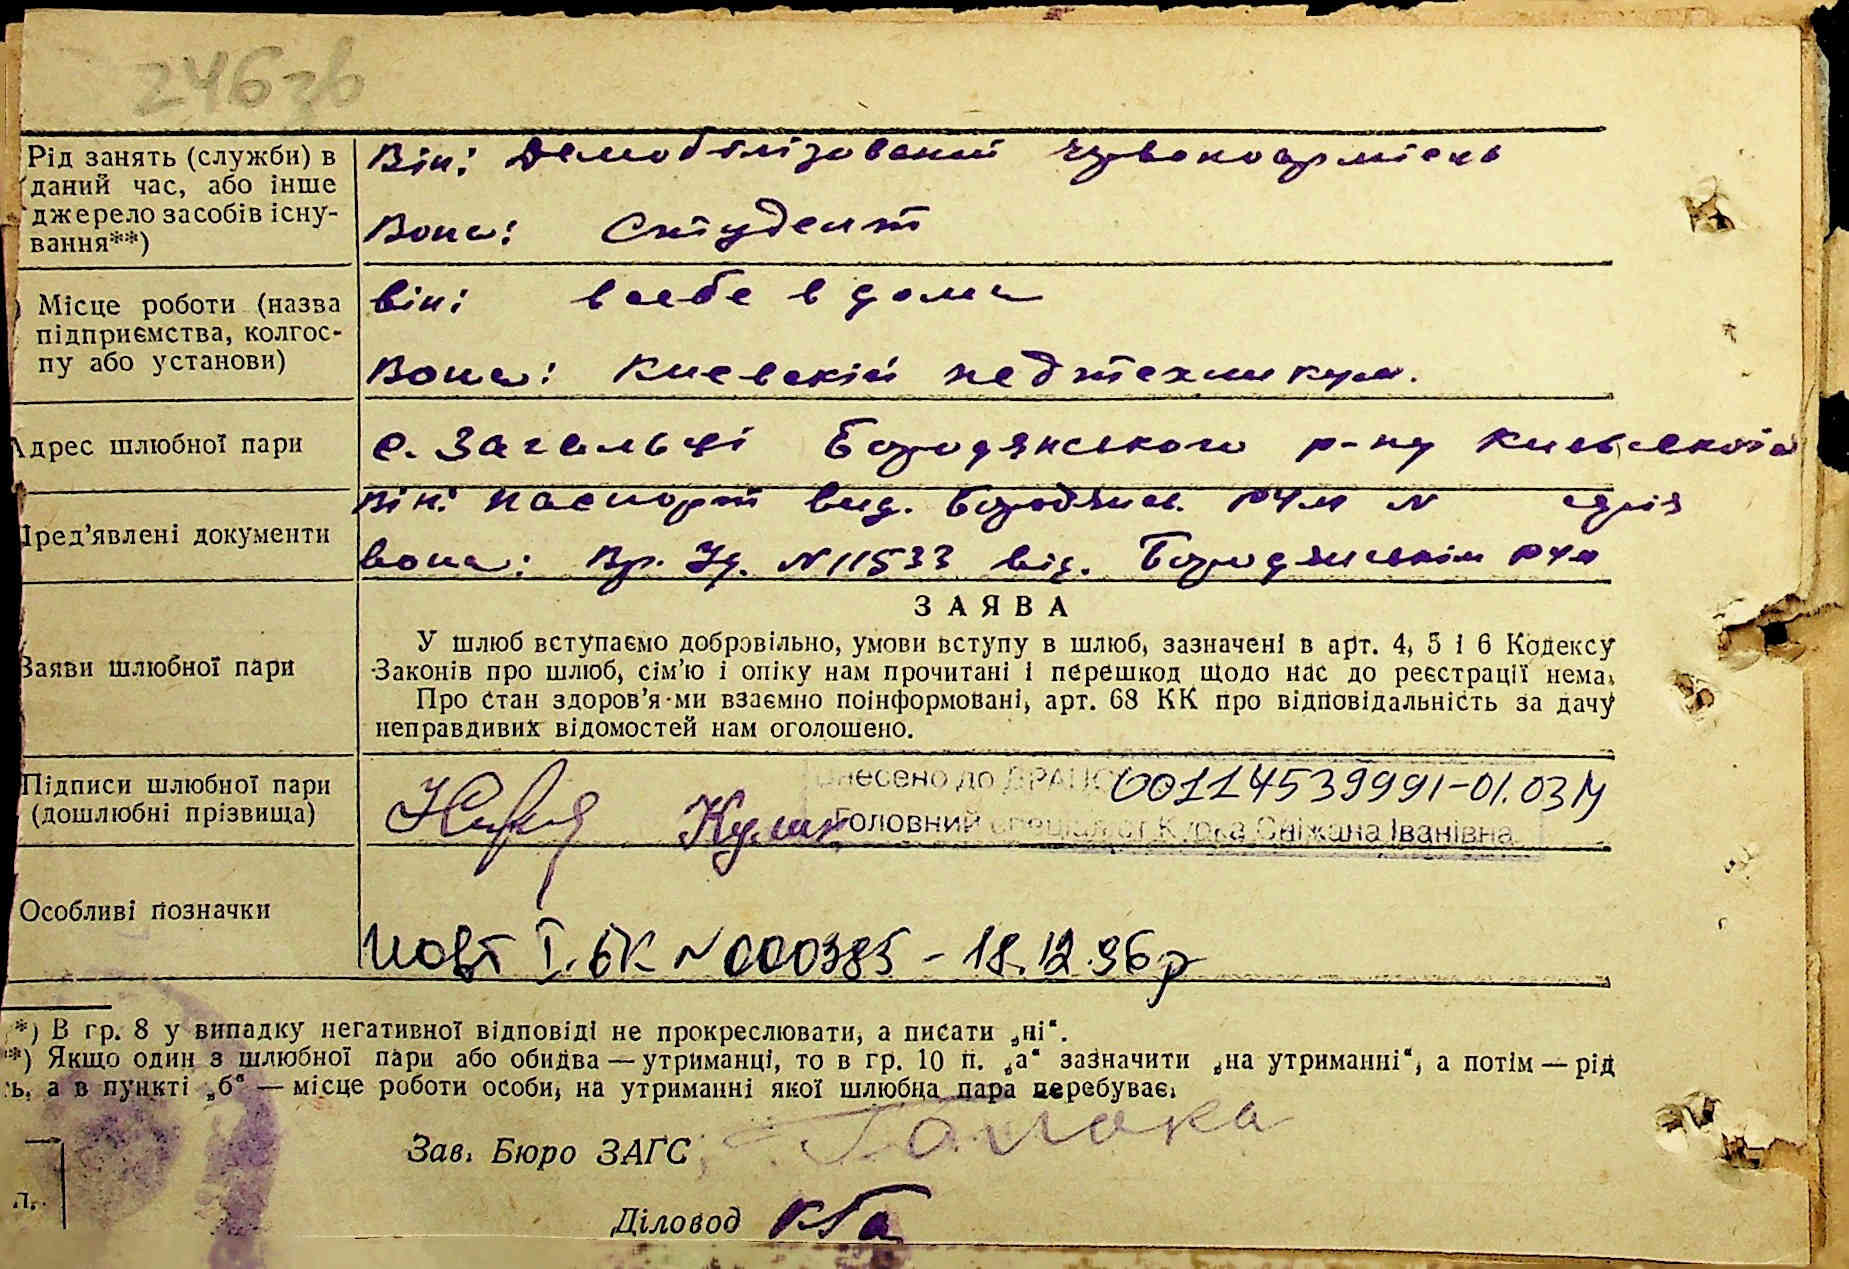 246зв
Рід занять (служби) в
даний час, або інше
джерело засобів існу-
вання**)
Він: Демобілізований червоноармієць
Вона: Студент
Місце роботи (назва
підприємства, колгос-
пу або установи)
він: в себе в дома
Вона: Киевский педтехникум.
Адрес шлюбної пари
с. Загальці Бородянського р-ну Київської
Пред'явлені документи
Він: паспорт вид. Бородянс. РЧМ N
вона: Вр. Уд. N 11533 від. Бородянським РЧМ
Заяви шлюбної пари
ЗАЯВА
У шлюб вступаємо добровільно, умови вступу в шлюб, зазначені в арт. 4, 5 і 6 Кодексу
Законів про шлюб, сім'ю і опіку нам прочитані і перешкод щодо нас до реєстрації нема.
Про стан здоров'я ми взаємно поінформовані, арт. 68 КК про відповідальність за дачу
неправдивих відомостей нам оголошено.
Підписи шлюбної пари
(дошлюбні прізвища)
Внесено до ДРАЦС 00114539991-01.03
Головний спеціаліст Курка Сніжана Іванівна
Особливі позначки
Повт І. БК N 000385 - 18.12.96р
*) В гр. 8 у випадку негативної відповіді не прокреслювати, а писати „ні“.
**) Якщо один з шлюбної пари або обидва — утриманці, то в гр. 10 п. „а“ зазначити „на утриманні“, а потім — рід
ь, а в пункті „б“ — місце роботи особи, на утриманні якої шлюбна пара перебуває.
Зав. Бюро ЗАГС
Діловод